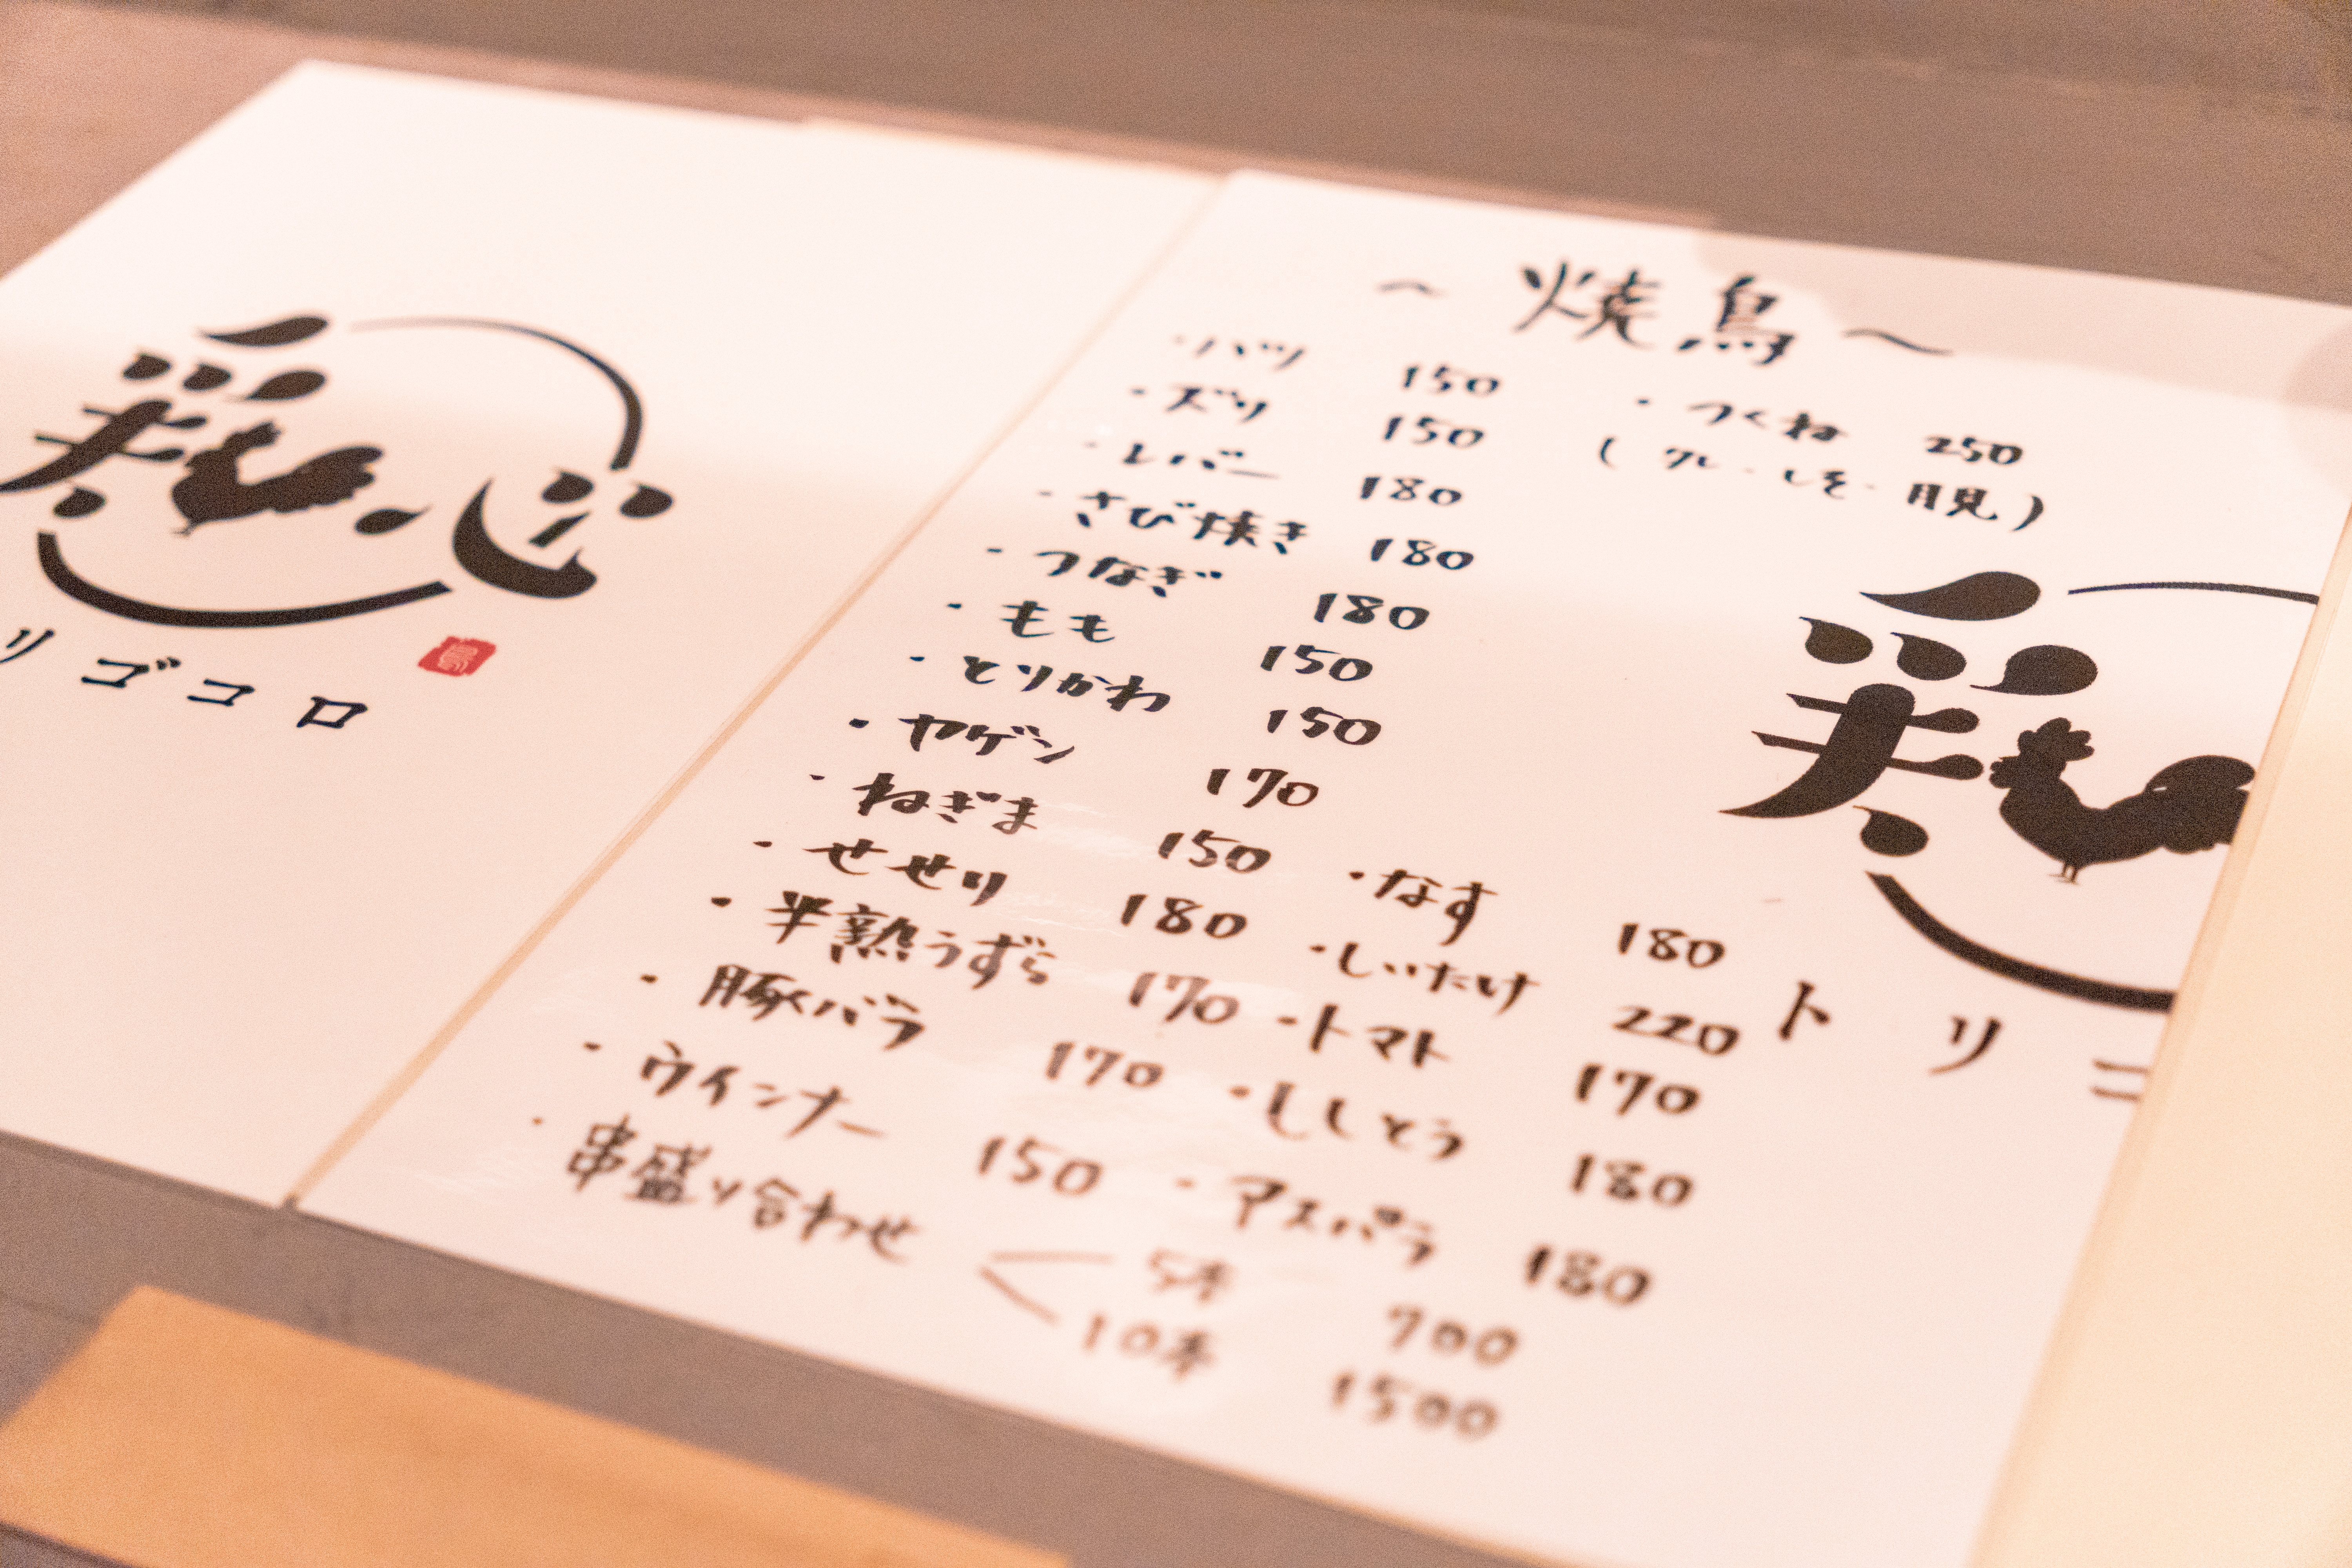 鶏心
リゴコロ
～焼鳥～
・ハツ 150
・ズリ 150
・レバー 180
・さび焼き 180
・つなぎ 180
・もも 150
・とりかわ 150
・ヤゲン 170
・ねぎま 150
・せせり 180
・半熟うずら 170
・豚バラ 170
・ウインナー 150
・串盛り合わせ
5本 700
10本 1500
・つくね 250
(タレ・しそ・月見)
・なす 180
・しいたけ 220
・トマト 170
・ししとう 180
・アスパラ 180
鶏
トリコ